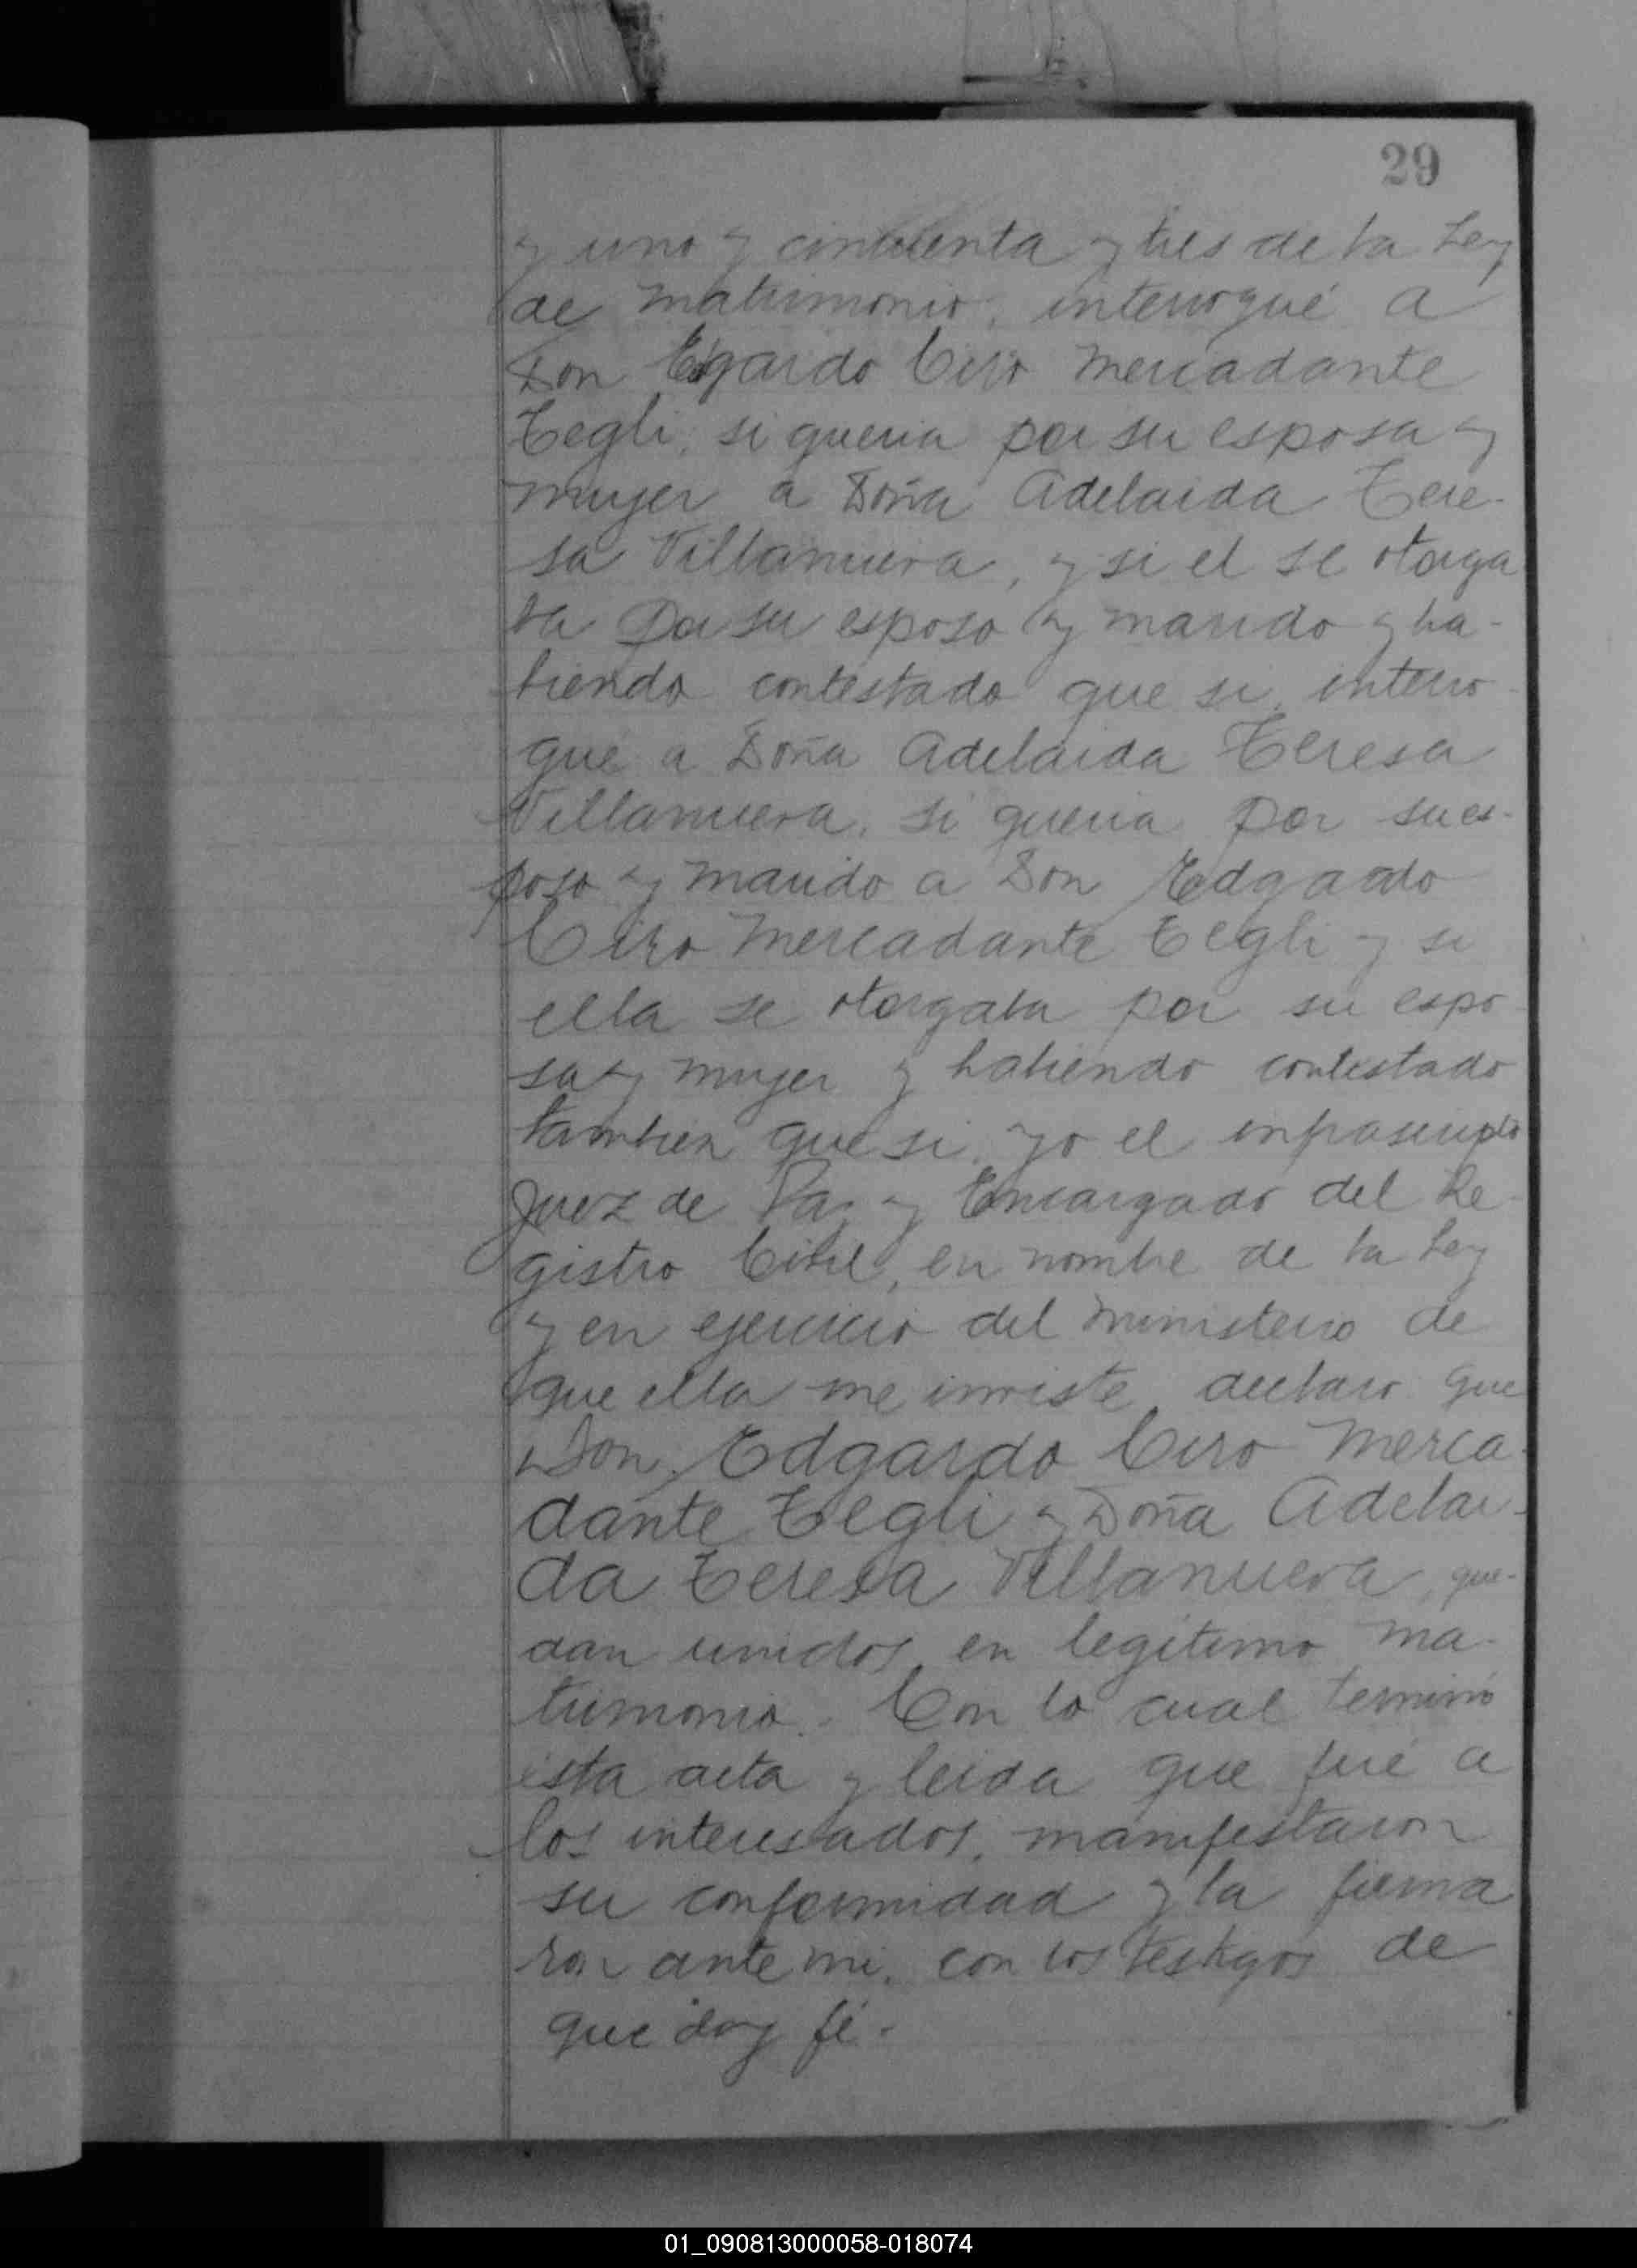 29
y uno y cincuenta y tres de la Ley
de Matrimonio, interrogué a
Don Edgardo Ciro Mercadante
Tegli, si queria por su esposa y
mujer a Doña Adelaida Tere-
sa Villanueva, y si el se otorga
ba por su esposo y marido y ha-
biendo contestado que si, interro-
gué a Doña Adelaida Teresa
Villanueva, si queria por su es-
poso y marido a Don Edgardo
Ciro Mercadante Tegli y si
ella se otorgaba por su espo-
sa y mujer y habiendo contestado
tambien que si, yo el infrascripto
Juez de Paz y Encargado del Re-
gistro Civil, en nombre de la Ley
y en ejercicio del Ministerio de
que ella me inviste, declaro que
Don Edgardo Ciro Merca-
dante Tegli y Doña Adelai-
da Teresa Villanueva, que-
dan unidos en legítimo ma-
trimonio. Con lo cual terminó
esta acta y leida que fué a
los interesados, manifestaron
su conformidad y la firma
ron ante mi, con los testigos de
que doy fé.
01_090813000058-018074